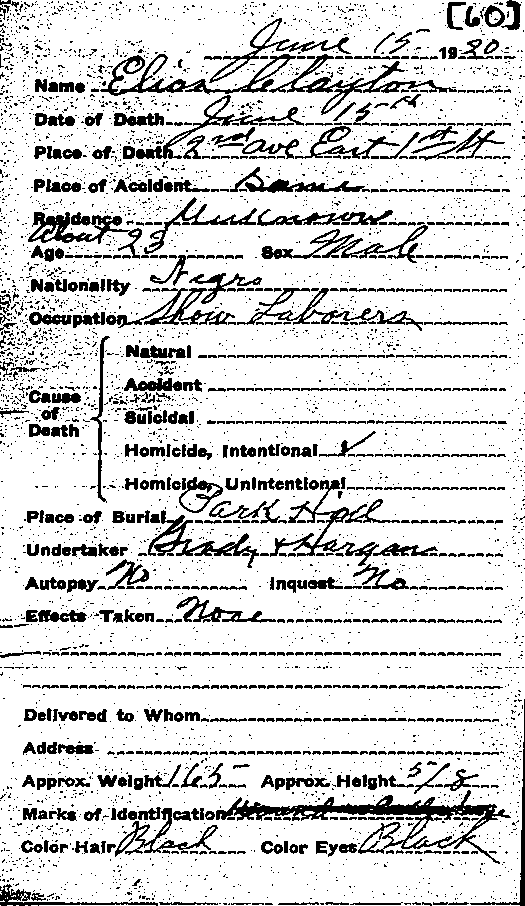 [60]
June 15 1920
Name Elias Clayton
Date of Death June 15th
Place of Death 2nd ave East 1st St
Place of Accident Same
Residence Unknown
About
Age 23 Sex Male
Nationality Negro
Occupation Show Laborers
Natural
Accident
Cause of Death
Suicidal
Homicide, Intentional ✓
Homicide, Unintentional
Place of Burial Park Hill
Undertaker Grady & Horgans
Autopsy No Inquest No
Effects Taken None
Delivered to Whom
Address
Approx. Weight 165 Approx. Height 5/8
Marks of Identification
Color Hair Black Color Eyes Black